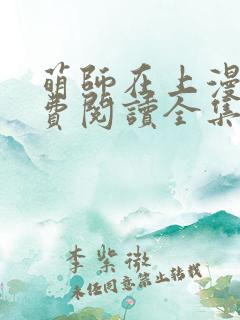 萌師在上漫
費閱讀全集
李紫微
未经同意禁止转载